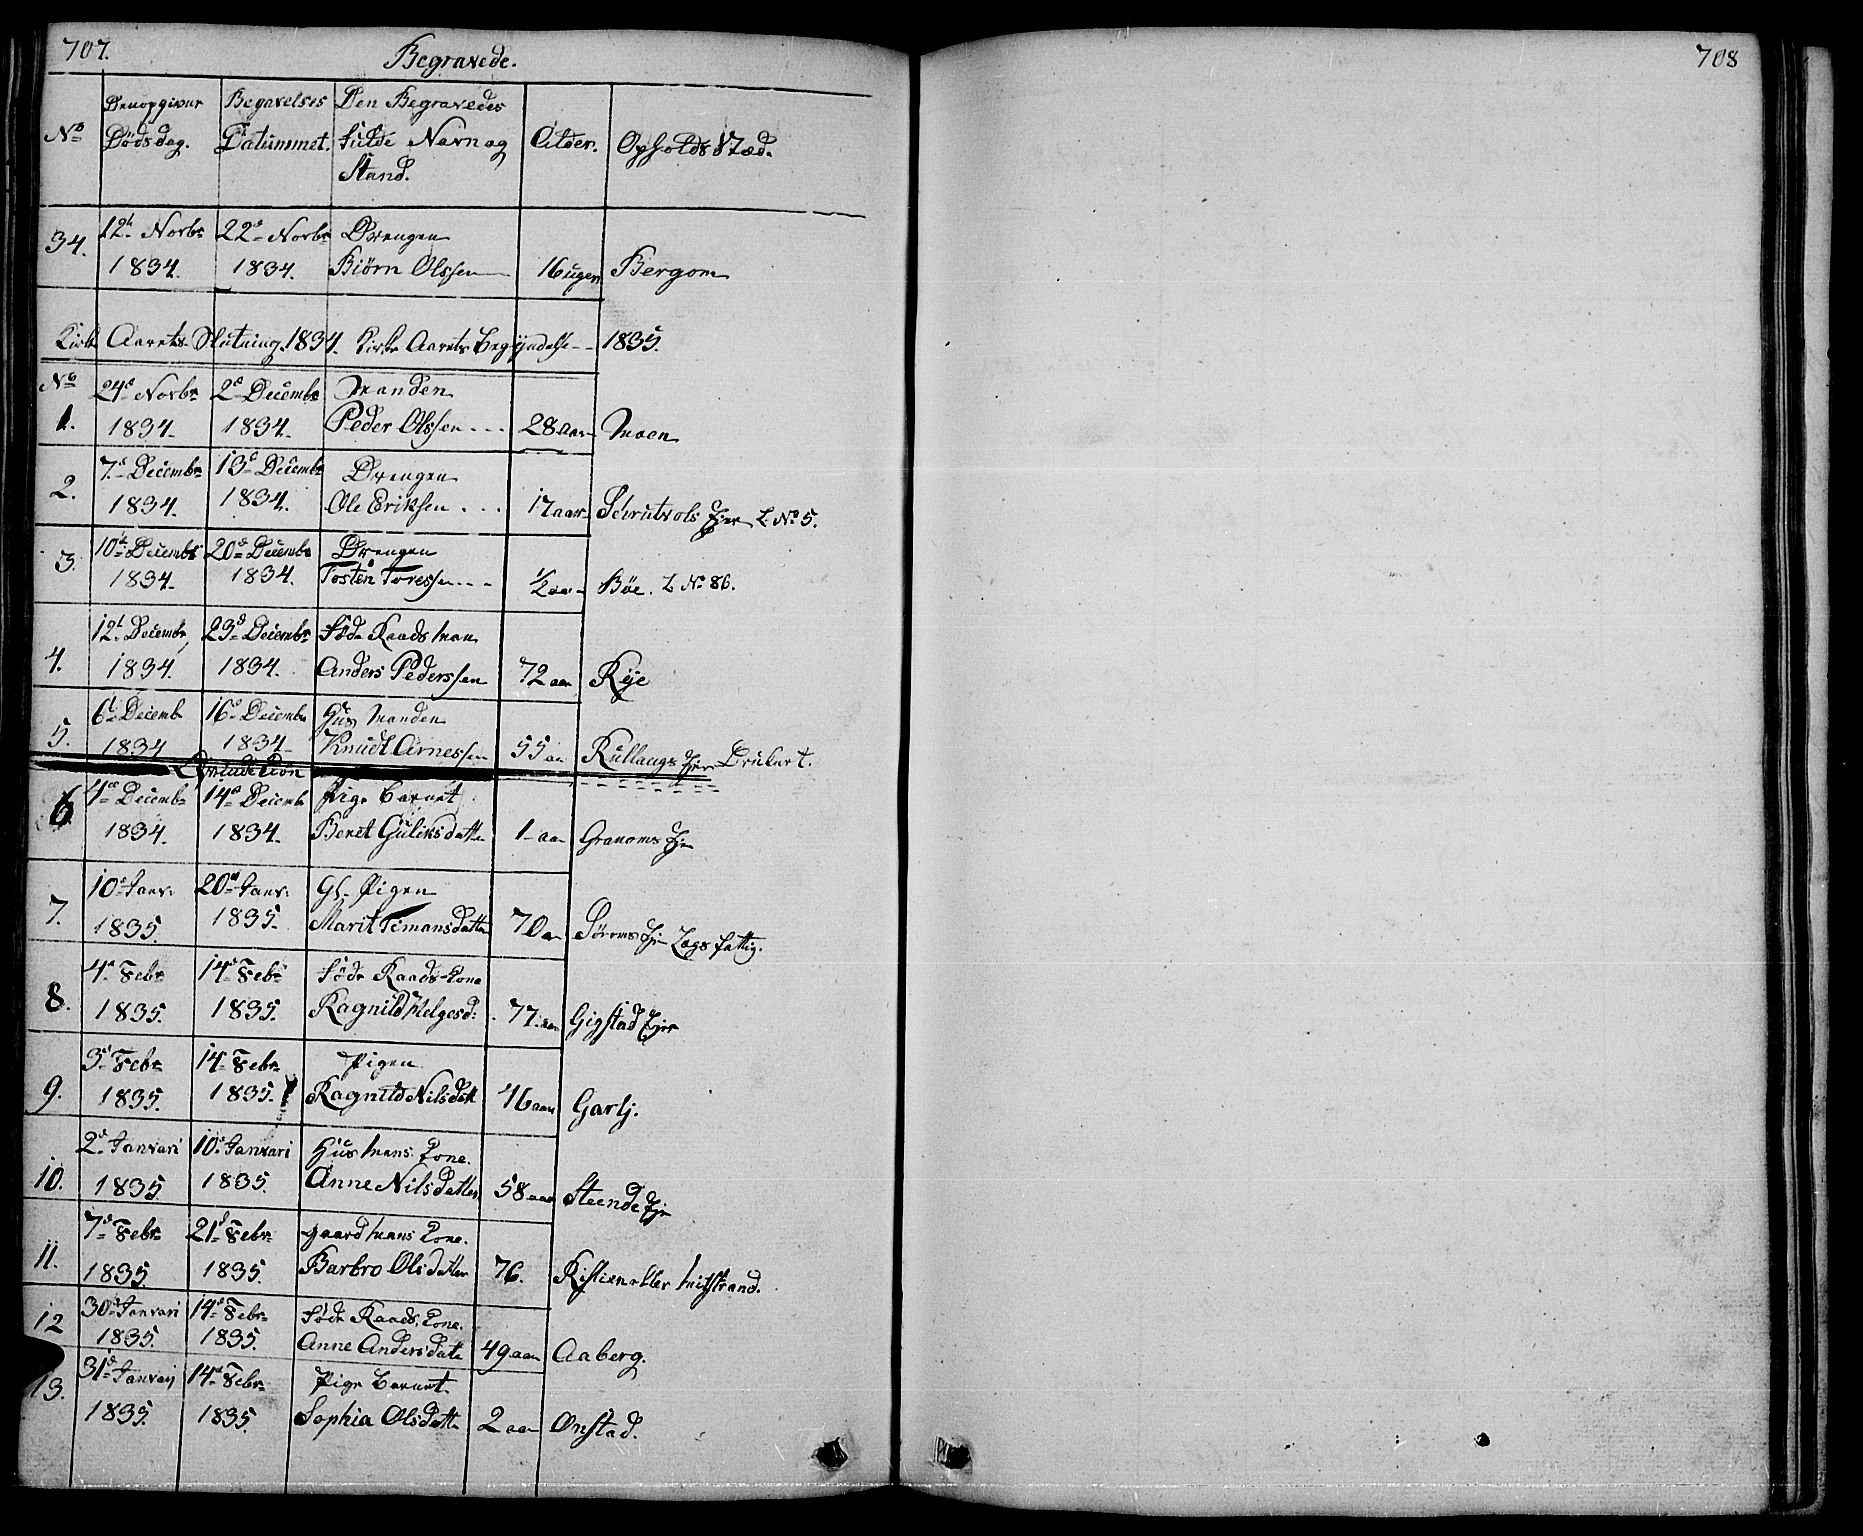 707.
Begravede.
708
No
Den opgivne Dødsdag.
Begravelses Datummet.
Den Begravedes fulde Navn og Stand.
Alder.
Opholds Stæd.
34. 12te Novbr 1834. 22de Novbr 1834. Drengen Biørn Olssen 16 uger Bergom
Kirke Aarets Slutning 1834. Kirke Aarets Begyndelse - - 1835.
No
1. 24de Novbr 1834. 2de Decembr 1834. Manden Peder Olssen . . . 28 aar Moen
2. 7de Decembr 1834. 13de Decembr 1834. Drengen Ole Eriksen . . . 17 aar Schrutvols Eier L. No 5.
3. 10de Decembr 1834. 20de Decembr 1834. Drengen Tosten Toressen - - - 1/2 aar Bøe. L No 86.
4. 12te Decembr 1834. 23de Decembr 1834. Føde Raads Man Anders Pederssen 72 aar Rye
5. 6te Decemb 1834 16de Decembr 1834 Huus Manden Knudt Arnessen 55 aar Rullangs Eier Brukert.
6 4de Decembr 1834. 14de Decembr 1834. Pige Barnet Beret Guliksdatter 1 aar Granoms Eier
7. 10de Janv: 1835. 20de Janv: 1835. Gl. Pigen Marit Temansdatter 70 aar Sørums Eier Lægs fattig.
8. 4de Febr 1835. 14de Febr 1835. Føde Raads Kone Ragnild Helgesd: 77 aar Gigstad Eier
9. 3de Febr 1835. 14de Febr 1835. Pigen Ragnild Nilsdatt 46 aar Garlj.
10. 2de Janvari 1835 10de Janvari 1835. Huus Mans Kone. Anne Nilsdatter 58 aar Steende Eier
11. 7de Febr 1835. 21de Febr 1835. Gaard Mans Kone. Barbro Olsdatter 76.
12 30de Janvari 1835. 14de Febr 1835. Føde Raads Kone. Anne Andersdatt 49 aar Aaberg.
13. 31de Janvarj 1835. 14de Febr 1835. Pige Barnet. Sophia Olsdatter 2 aar Onstad.